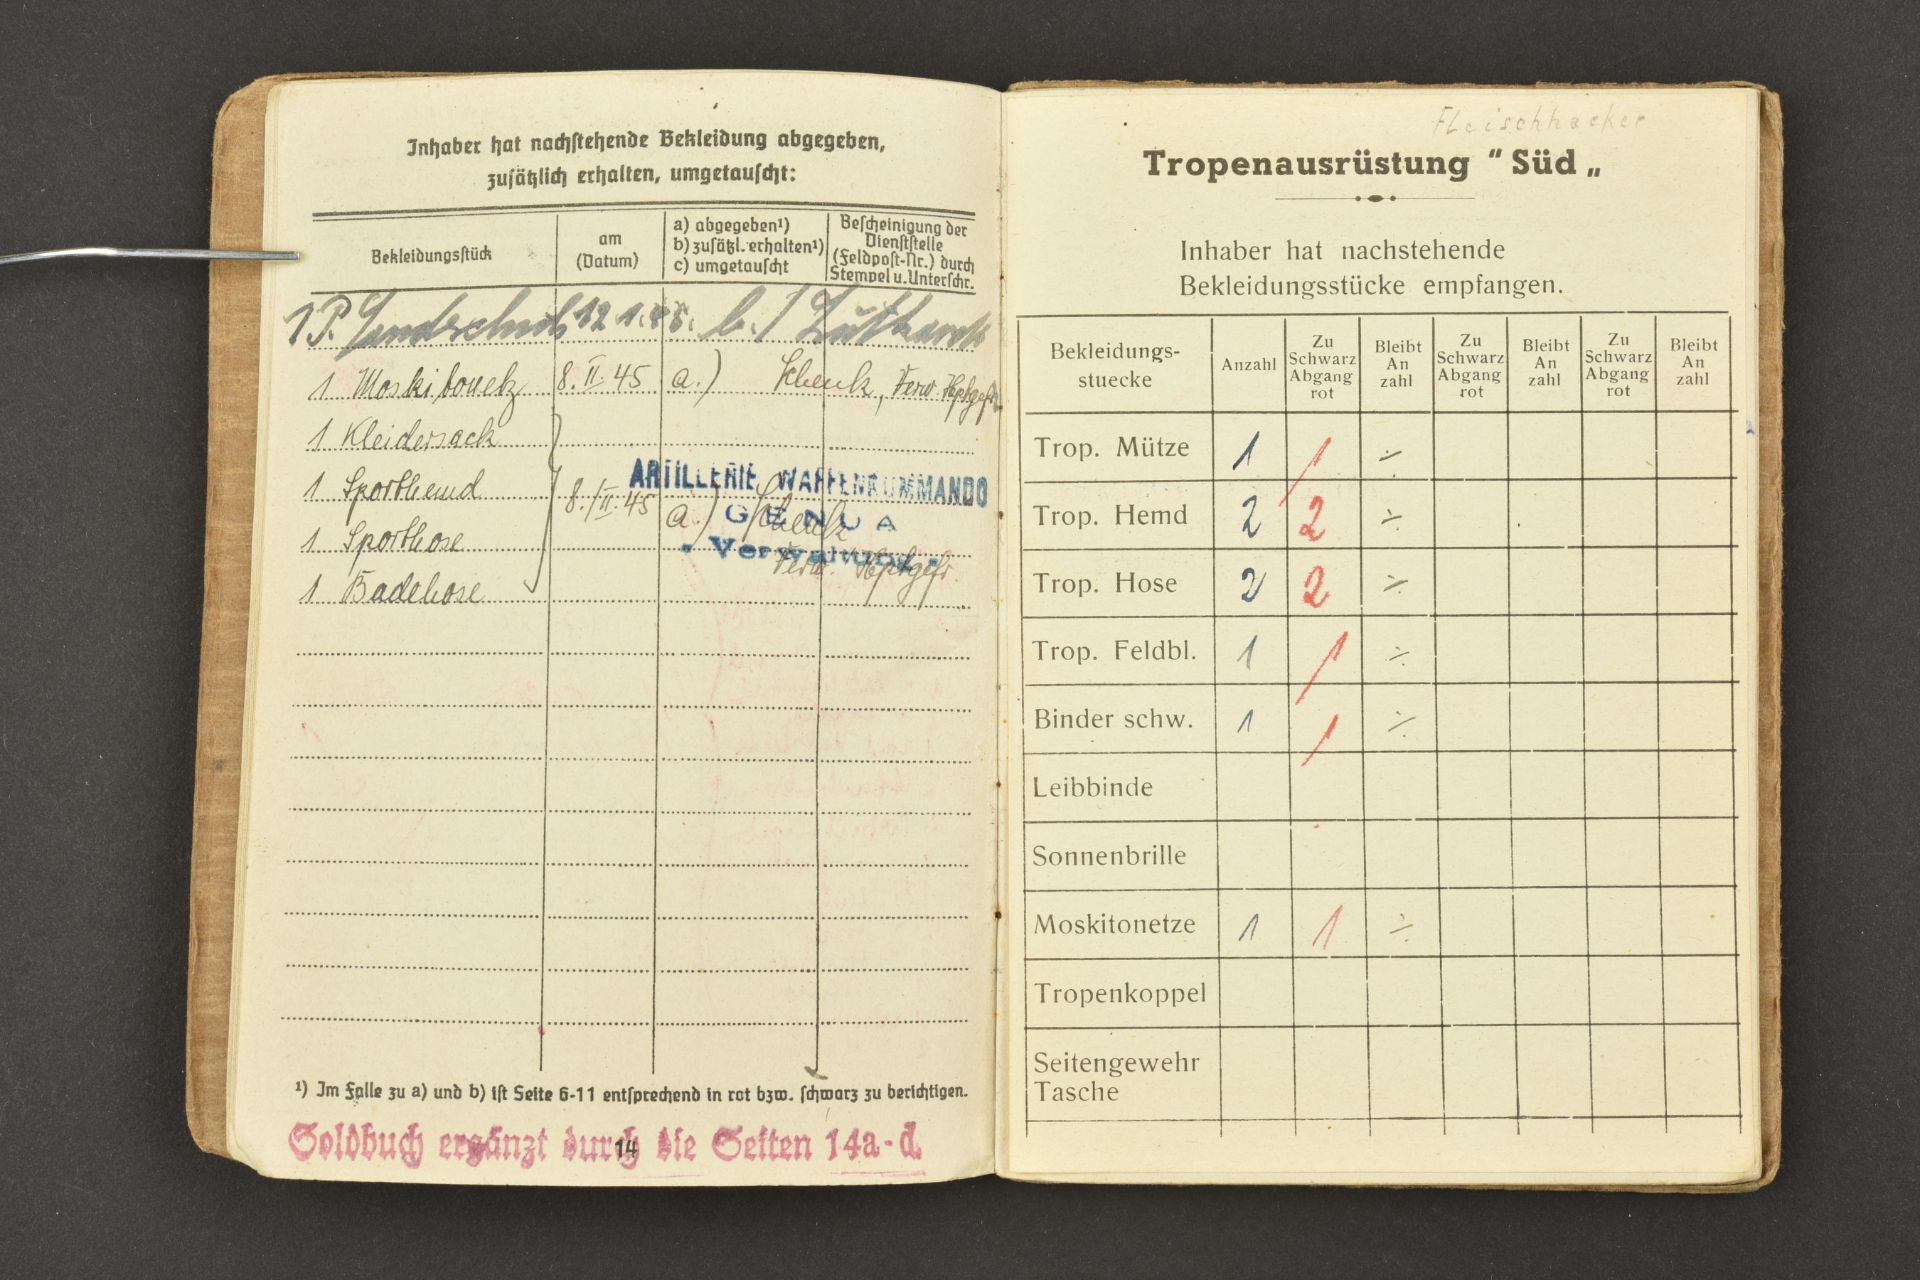 Inhaber hat nachstehende Bekleidung abgegeben,
zusätzlich erhalten, umgetauscht:
Bekleidungsstück
am
(Datum)
a) abgegeben¹)
b) zusätzl. erhalten¹)
c) umgetauscht
Bescheinigung der
Dienststelle
(Feldpost-Nr.) durch
Stempel u. Unterschr.
1 P. 12.1.45. b.)
1 8. II. 45 a.) Schenk, Verw. Hptgefr.
1 Kleidersack
1 Sporthemd
8. II. 45 a.) Schenk
1 Sporthose
Verw. Hptgefr.
1 Badehose
ARTILLERIE WAFFENKOMMANDO
GENUA
- Verwaltung -
¹) Im Falle zu a) und b) ist Seite 6-11 entsprechend in rot bzw. schwarz zu berichtigen.
14
Soldbuch ergänzt durch die Seiten 14a-d.
Fleischhacker
Tropenausrüstung " Süd „
Inhaber hat nachstehende
Bekleidungsstücke empfangen.
Bekleidungs-
stuecke
Anzahl
Zu
Schwarz
Abgang
rot
Bleibt
An
zahl
Zu
Schwarz
Abgang
rot
Bleibt
An
zahl
Zu
Schwarz
Abgang
rot
Bleibt
An
zahl
Trop. Mütze 1 1 ÷
Trop. Hemd 2 2 ÷
Trop. Hose 2 2 ÷
Trop. Feldbl. 1 1 ÷
Binder schw. 1 1 ÷
Leibbinde
Sonnenbrille
Moskitonetze 1 1 ÷
Tropenkoppel
Seitengewehr
Tasche